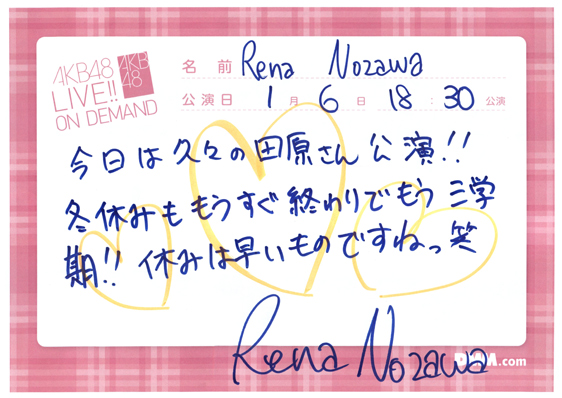 AKB48
LIVE!!
ON DEMAND
AKB
48
名前 Rena Nozawa
公演日 1月6日 18:30公演
今日は久々の田原さん公演!!
冬休みももうすぐ終わりでもう三学
期!! 休みは早いものですねっ笑
Rena Nozawa
.com